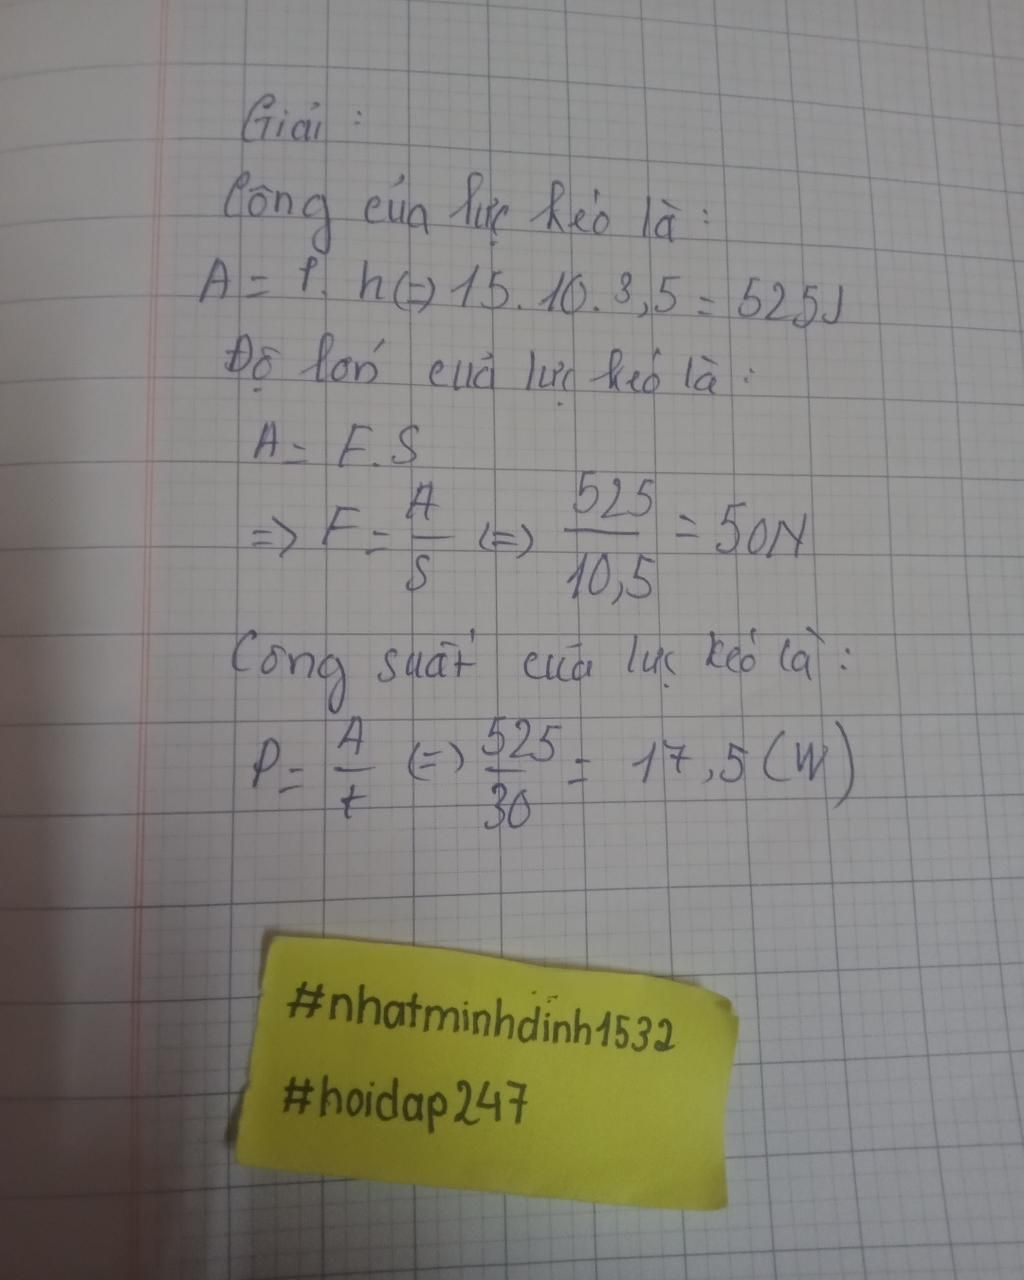 Giải :
Công của lực kéo là :
A = P. h (=) 15. 10. 3,5 = 525J
Độ lớn của lực kéo là :
A = F. S
=> F = A/S (=) 525/10,5 = 50N
Công suất của lực kéo là :
P = A/t (=) 525/30 = 17,5 (W)
#nhatminhdinh1532
#hoidap247